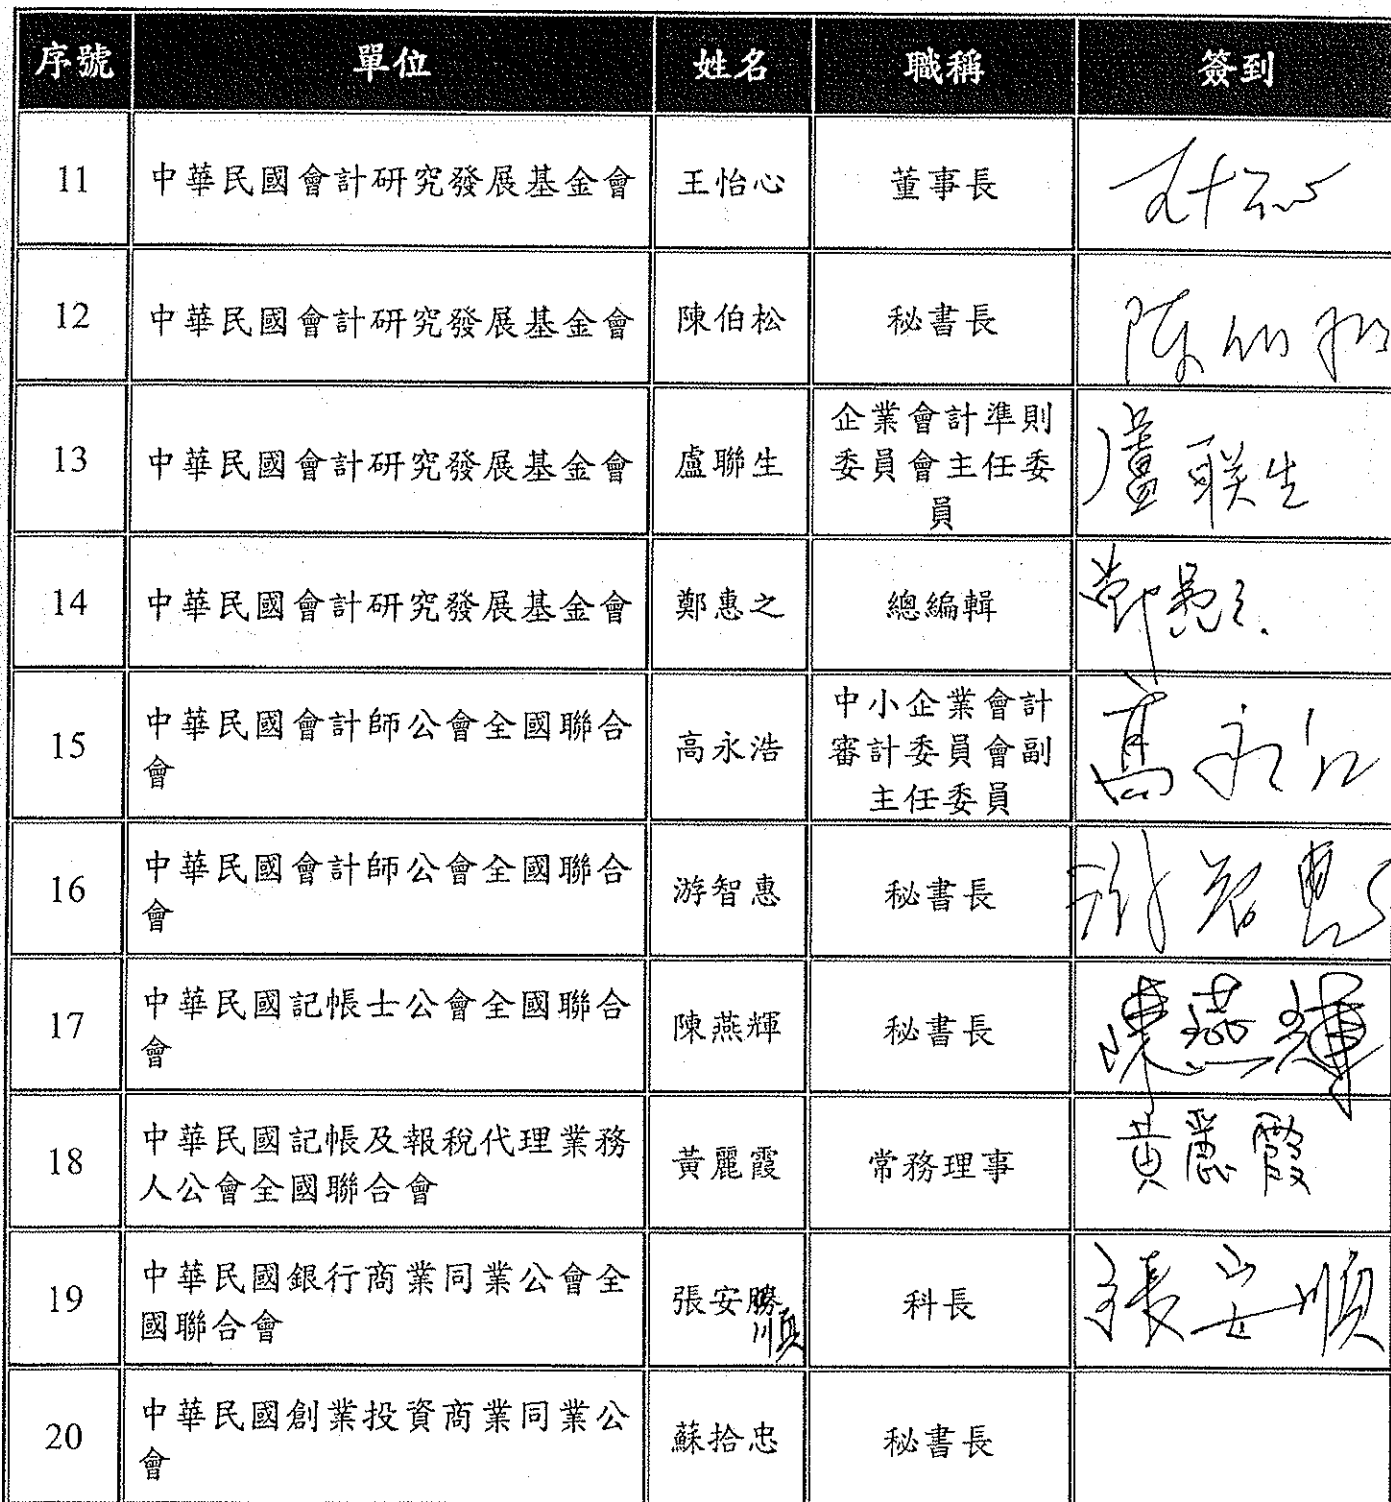 序號 單位 姓名 職稱 簽到
11 中華民國會計研究發展基金會 王怡心 董事長
12 中華民國會計研究發展基金會 陳伯松 秘書長 陈伯松
13 中華民國會計研究發展基金會 盧聯生 企業會計準則
委員會主任委
員
盧联生
14 中華民國會計研究發展基金會 鄭惠之 總編輯
15 中華民國會計師公會全國聯合
會
高永浩 中小企業會計
審計委員會副
主任委員
高永浩
16 中華民國會計師公會全國聯合
會
游智惠 秘書長 游智惠
17 中華民國記帳士公會全國聯合
會
陳燕輝 秘書長 陳燕輝
18 中華民國記帳及報稅代理業務
人公會全國聯合會
黃麗霞 常務理事 黃麗霞
19 中華民國銀行商業同業公會全
國聯合會
張安勝
順
科長 張安順
20 中華民國創業投資商業同業公
會
蘇拾忠 秘書長